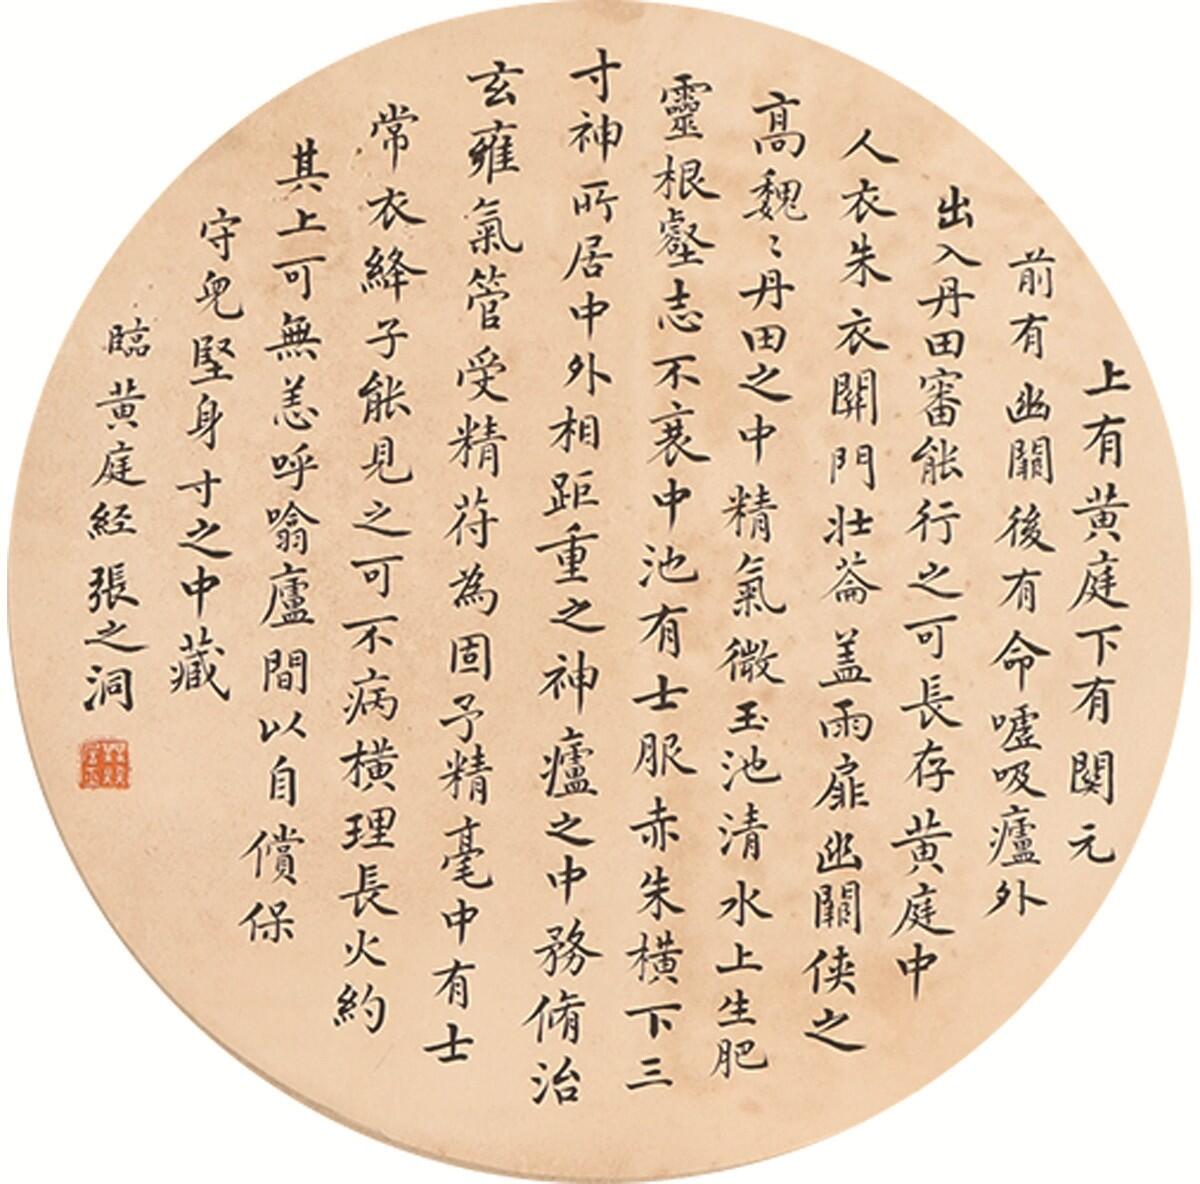 上有黄庭下有関元
前有幽闗後有命嘘吸廬外
出入丹田審能行之可長存黄庭中
人衣朱衣関門壮蘥盖兩扉幽闗侠之
髙巍〻丹田之中精氣微玉池清水上生肥
靈根堅志不衰中池有士服赤朱横下三
寸神所居中外相距重之神廬之中務脩治
玄癰氣管受精苻為固予精毫中有士
常衣絳子能見之可不病横理長尺約
其上可無恙呼噏廬間以自償保
守皃堅身寸之中藏
臨黄庭経張之洞